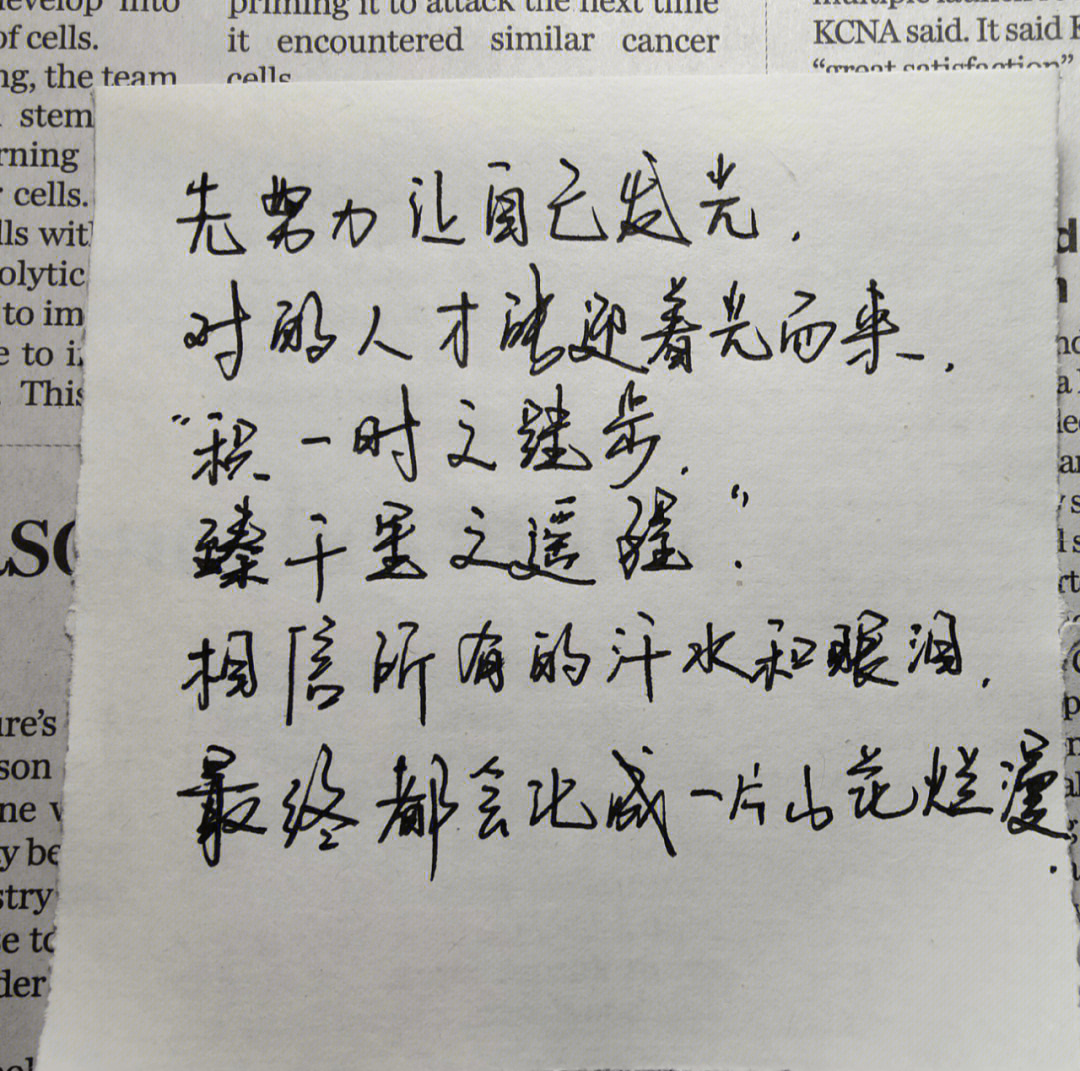 evelop into
of cells.
ng, the team
stem
rning
cells.
lls wit
olytic
to im
e to i
This
LSO
ure's
son
ne v
y be
stry
e to
der
priming it to attack the next time
it encountered similar cancer
cells
multiple
KCNA said. It said
“great satisfaction”
先努力让自己发光，
对的人才能迎着光而来，
“积一时之跬步，
臻千里之遥程”。
相信所有的汗水和眼泪，
最终都会化成一片山花烂漫.